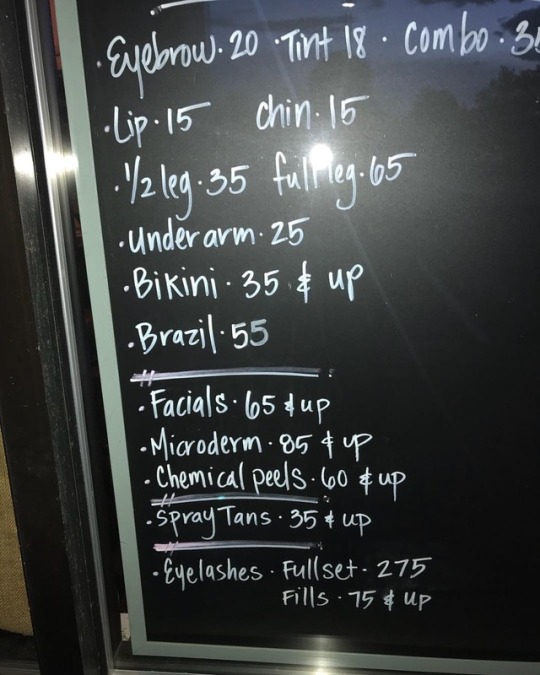 · Eyebrow · 20 · Tint 18 · Combo ·
· Lip · 15 chin · 15
· 1/2 leg · 35 full leg · 65
· Underarm · 25
· Bikini · 35 & up
· Brazil · 55
· Facials · 65 & up
· Microderm · 85 & up
· Chemical peels · 60 & up
· Spray Tans · 35 & up
· Eyelashes · Full set · 275
Fills · 75 & up